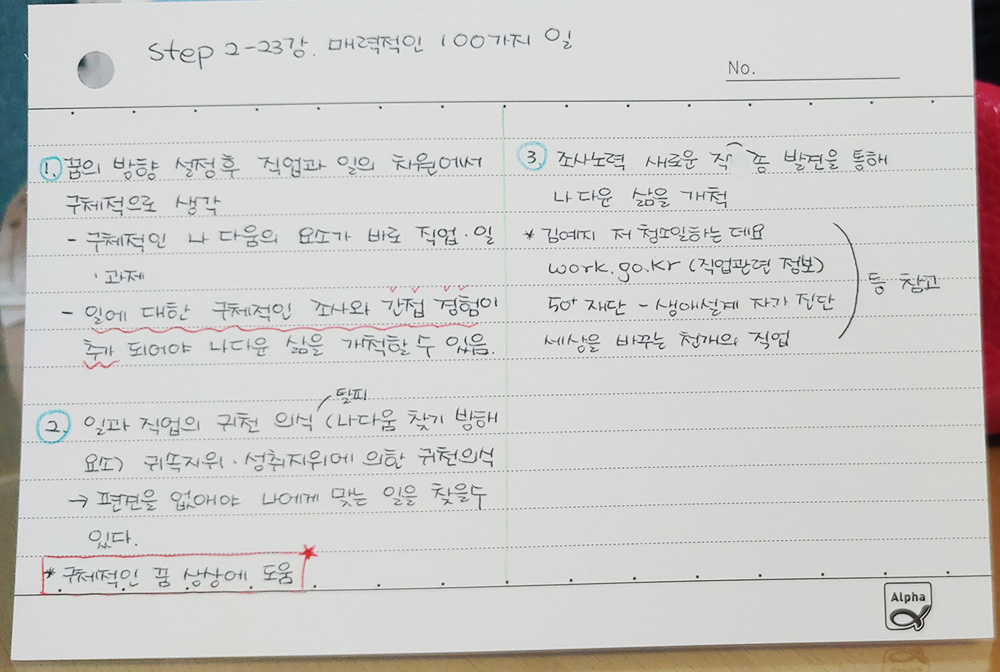 Step 2-23강. 매력적인 100가지 일
No.
1. 꿈의 방향 설정후 직업과 일의 차원에서
구체적으로 생각
- 구체적인 나다움의 요소가 바로 직업·일
·과제
- 일에 대한 구체적인 조사와 간접 경험이
추가 되어야 나다운 삶을 개척할 수 있음.
탈피
2. 일과 직업의 귀천 의식 (나다움 찾기 방해
요소) 귀속지위·성취지위에 의한 귀천의식
→ 편견을 없애야 나에게 맞는 일을 찾을수
있다.
* 구체적인 꿈 상상에 도움
3. 조사노력 새로운 직종 발견을 통해
나다운 삶을 개척
* 김예지 저 청소일하는데요
work.go.kr (직업관련 정보)
50+ 재단 - 생애설계 자가 진단
세상을 바꾸는 천개의 직업
등 참고
Alpha